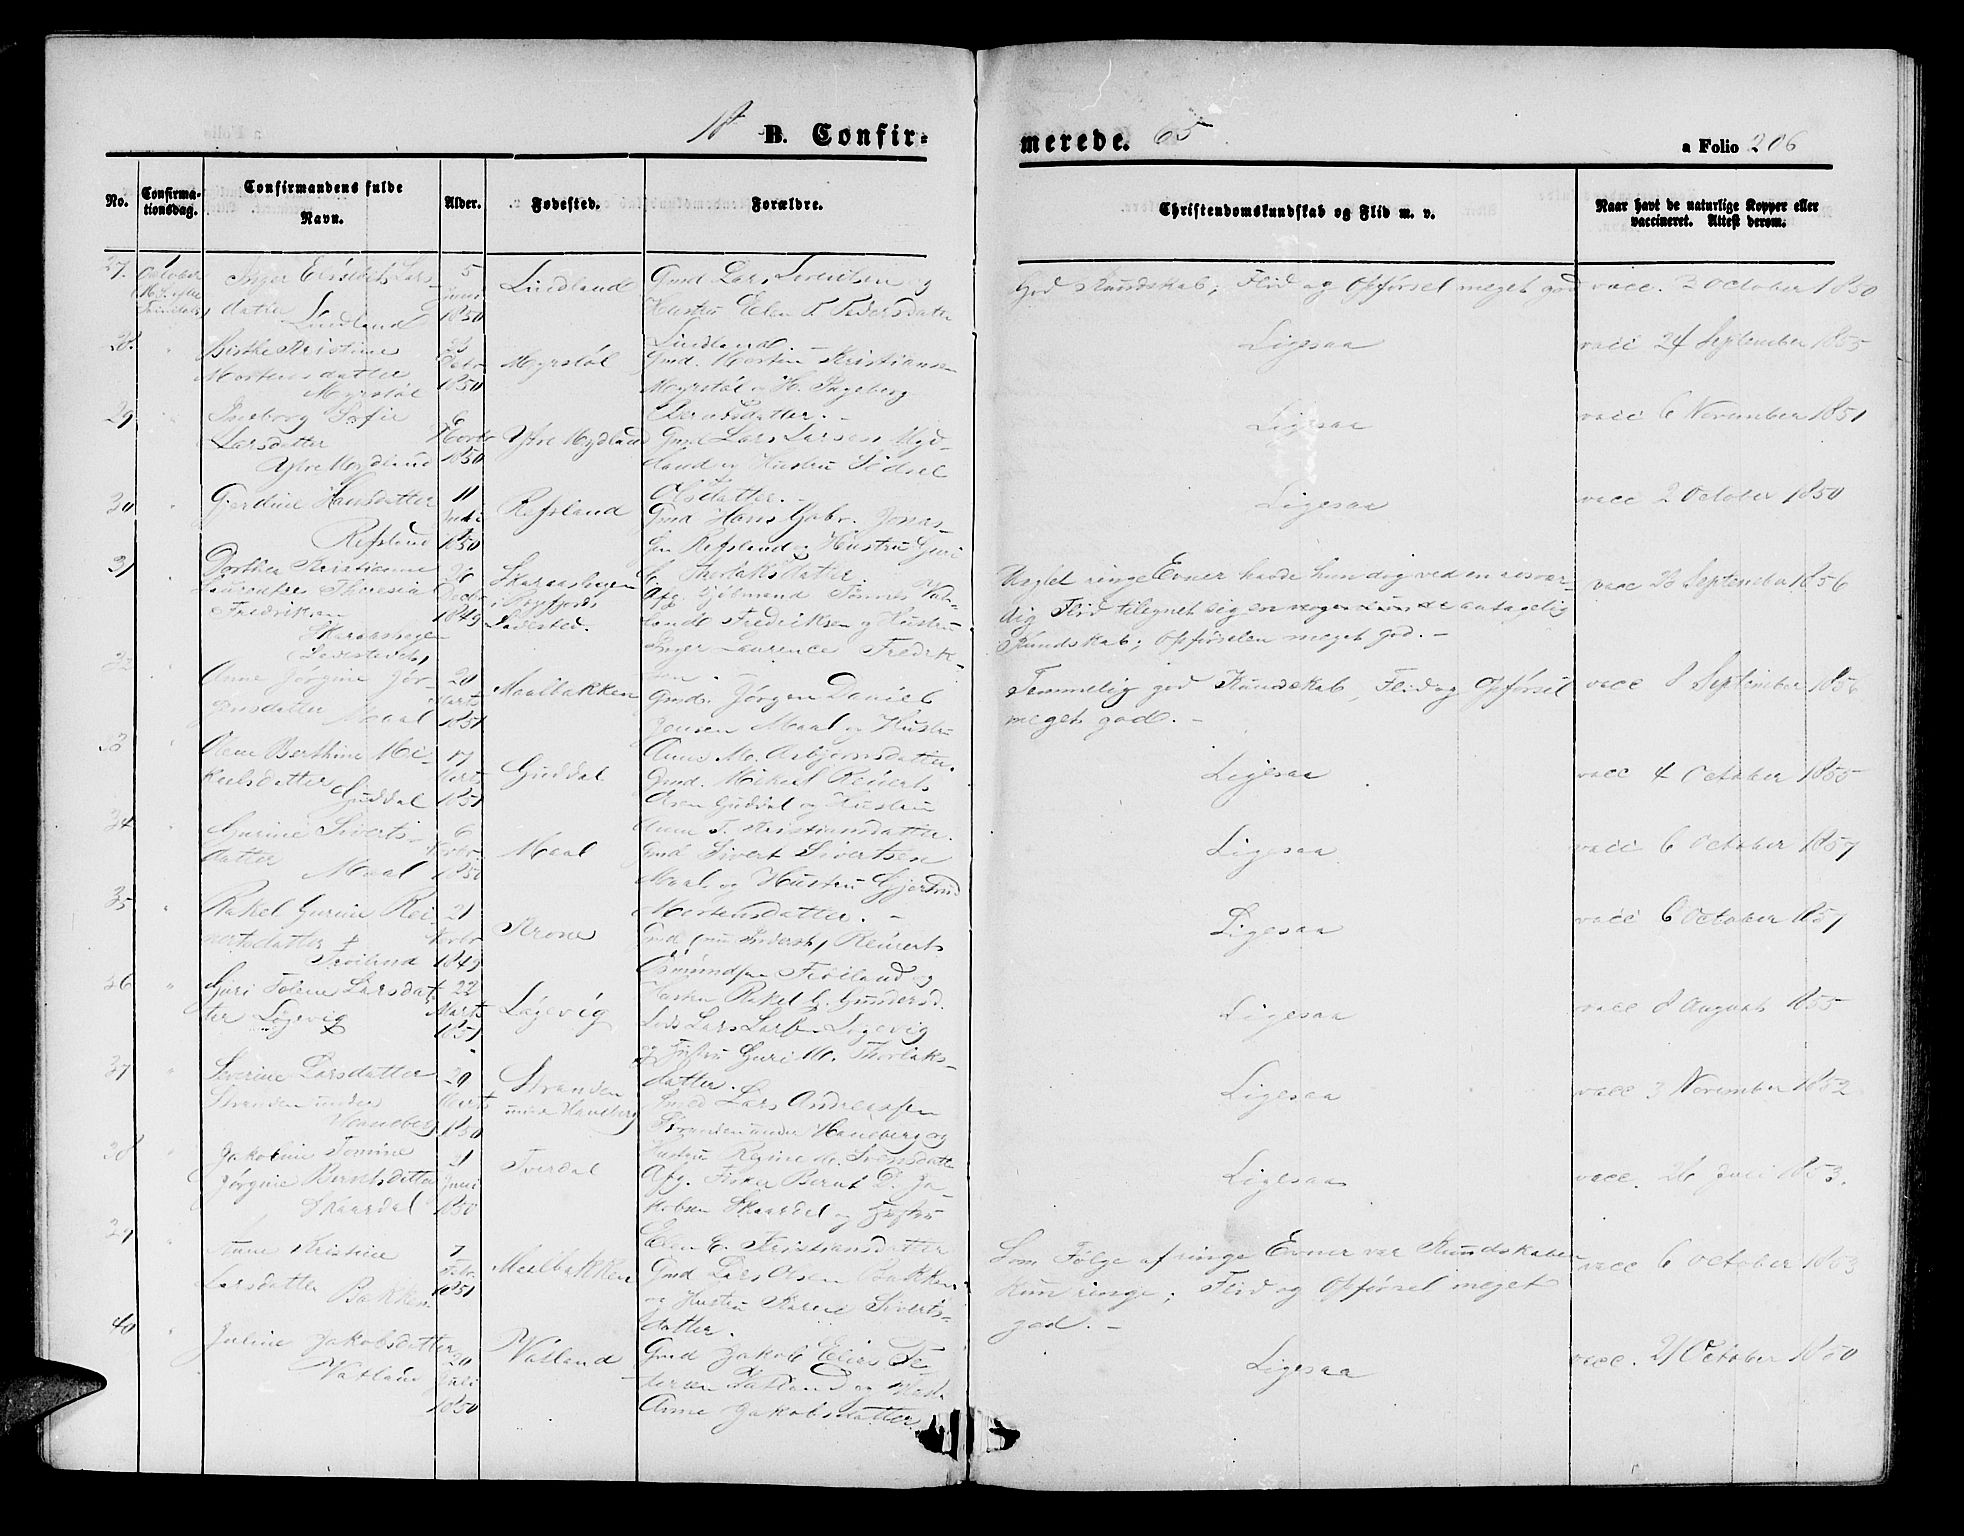 18 B. Confirmerede. 65
a Folio 206
No. Confirmationsdag. Confirmandens fulde Navn. Alder. Fødested. Forældre. Christendomskundskab og Flid m. v. Naar havt de naturlige Kopper eller vaccineret. Attest derom.
27. 1 October Inger Lars-
datter Lindland
5 Juni 1850
Lindland
Gmd Lars Sivertsen og
Hustru Elen T. Pedersdatter
Lindland. -
God Kundskab; Flid og Opførsel meget god
vacc. 2 October 1850
28. Kristine
Mortensdatter
Myrstøl
1850
Myrstøl
Gmd. Morten Kristiansen
Myrstøl og H. Ingeborg
Ligesaa
vacc 24 September 1855
29 Ingeborg Sofie
Larsdatter
Ytre Mydland
6 Novbr 1850
Ytre Mydland
Gmd Lars Larsen Myd-
land og Hustru Sidsel
Olsdatter. -
Ligesaa
vacc 6 November 1851
30 Gjerdine Hansdatter
Refsland
11 1850
Refsland
Gmd Hans Gabr. Jonas-
sen Refsland og Hustru Guri
Thorlaksdatter
Ligesaa
vacc 2 October 1850
31 Dorthea Kristianne
Laurentse Theresia
Fredriksen
Skaraashagen
Ladested,
26 Decbr 1849
Skaraashagen
i Rægefjords
Ladested.
Afg. Gjæstmand Tønnes
Fredriksen og Hustru
Inger Laurence Fredrik-
sen.
Uagtet ringe Evner havde hun dog ved en rosvær-
dig Flid tilegnet sig en antagelig
Kundskab; Opførselen meget god. -
vacc 26 September 1856
32 Anne Jørgine Jør-
gensdatter Maal
28 Marts 1851
Maalbakken
Gmd. Jørgen Daniel
Jensen Maal og Hustru
Anne M. Asbjørnsdatter.
Temmelig god Kundskab, Flid og Opførsel
meget god. -
vacc 8 September 1856
33 Olene Berthine Mi-
kaelsdatter
Guddal
17 Marts 1851
Guddal
Gmd. Mikael Reinert
Olsen Guddal og Hustru
Anne T. Kristiansdatter.
Ligesaa
vacc 4 October 1855
34 Gurine Siverts-
datter
Maal
6 Novbr. 1850
Maal
Gmd Sivert Sivertsen
Maal og Hustru Gjertrud
Mortensdatter. -
Ligesaa
vacc 6 October 1857
35 Rakel Gurine Rei-
nertsdatter
Frøiland
21 Novbr 1849
Krone
Gmd Reinert
Osmundsen Frøiland og
Hustru Rakel G. Gundersd.
Ligesaa
vacc 6 October 1857
36 Guri Tolene Larsdat-
ter Løgevig
22 Marts 1851
Løgevig
Lods Lars Larsen Løgevig
og Hustru Guri M. Thorlaks-
datter.
Ligesaa
vacc 8 August 1855
37 Severine Larsdatter
Stranden under
Haneberg
29 Marts 1850
Stranden
under Haneberg
Gmd Lars Andreassen
Stranden under Haneberg og
Hustru Regine Svensdatter
Ligesaa
vacc 3 November 1852
38 Jakobine Tomine
Jørgine Berntsdatter
Skaardal
21 Juni 1850
Tverdal
Afg. Fisker Bernt D. Ja-
kobsen Skaardal og Hustru
Elen E. Kristiansdatter
Ligesaa
vacc. 26 Juli 1853.
39 Anne Kristine
Larsdatter
Bakken
7 Febr. 1851
Maalbakken
Gmd Lars Olsen Bakken
og Hustru Karine Siverts-
datter.
Som Følge af ringe Evner var Kundskaben
kun ringe; Flid og Opførsel meget
god. -
vacc 6 October 1853
40 Juline Jakobsdatter
Vatland
20 Juli 1850
Vatland
Gmd Jakob Elias Pe-
dersen Vatland og Hust.
Anne Jakobsdatter
Ligesaa
vacc. 21 October 1850